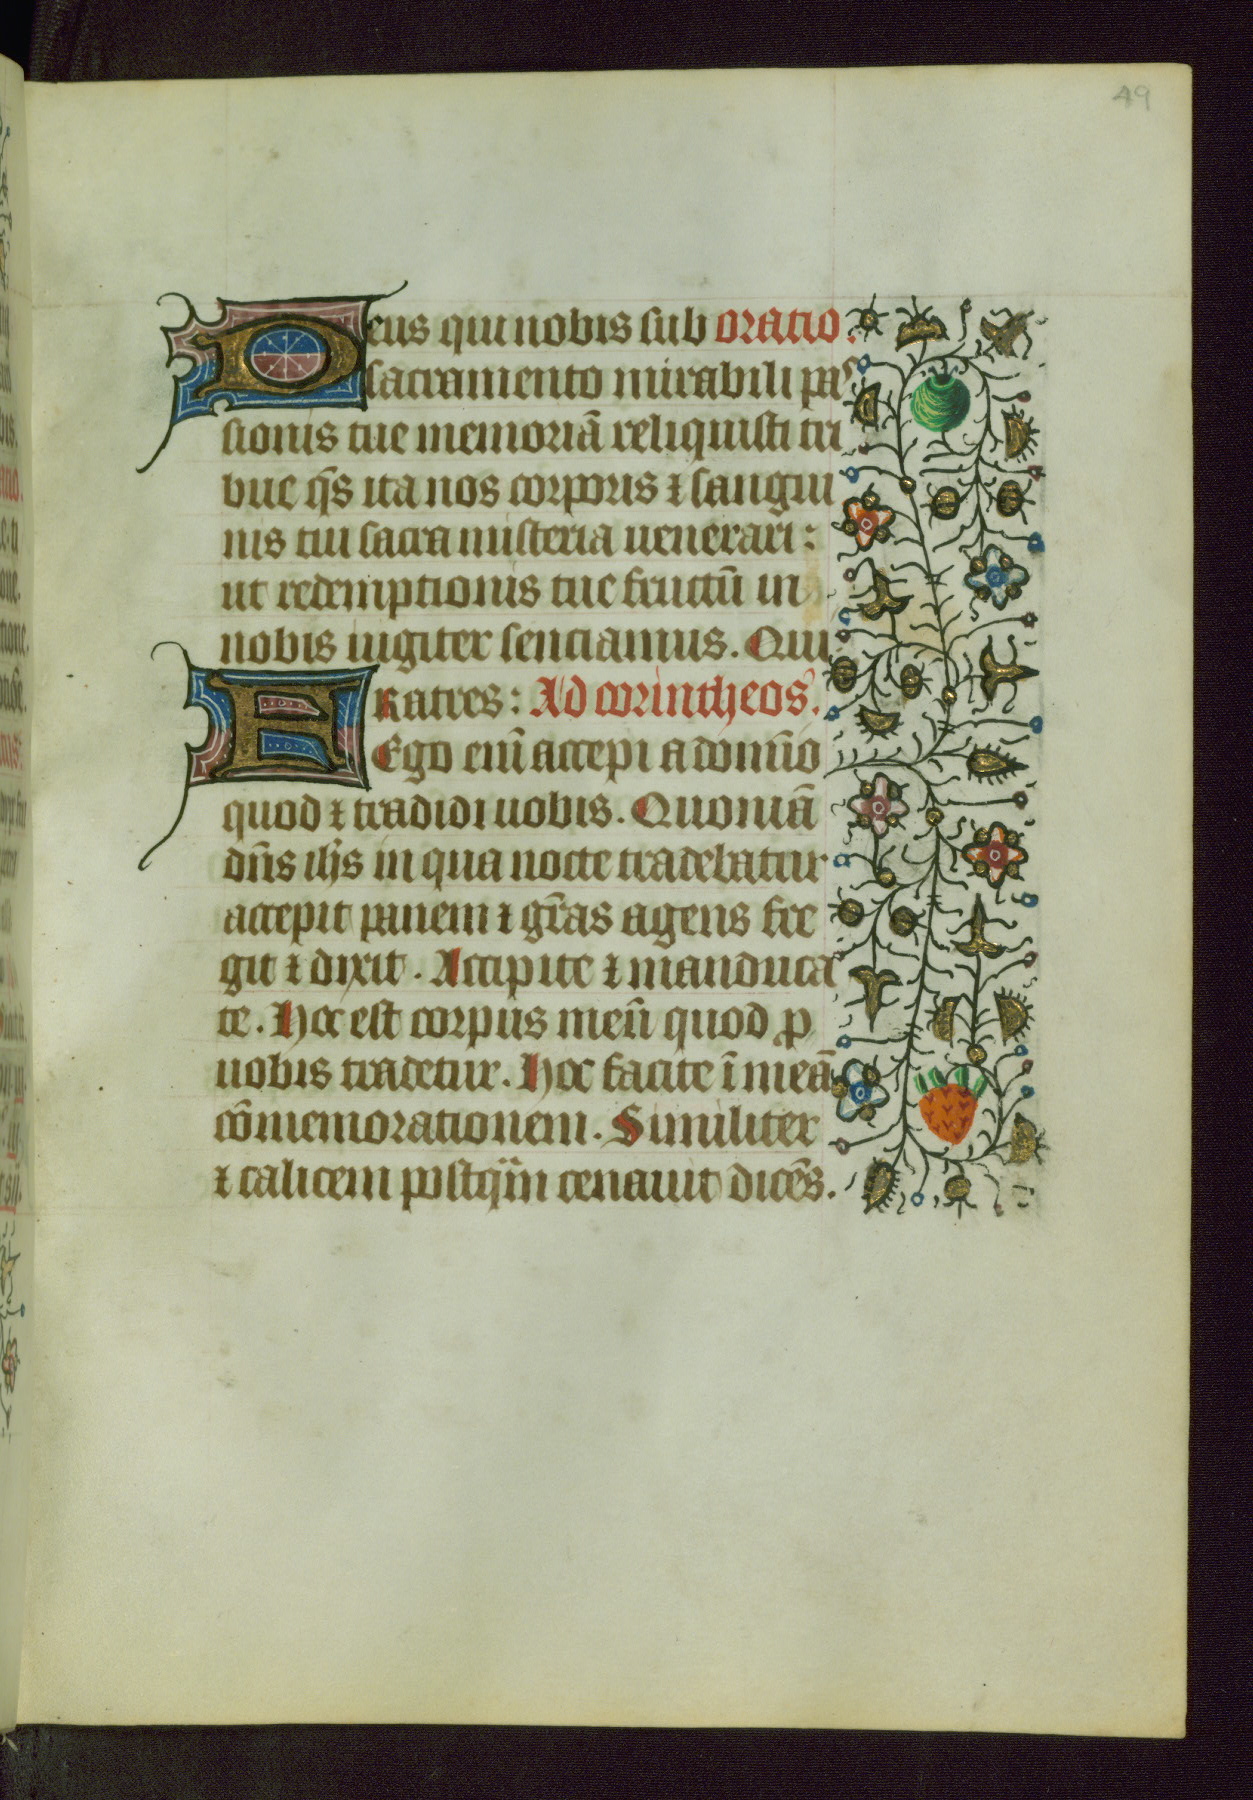 49
Deus qui nobis sub oratio.
sacramento mirabili pas
sionis tue memoriā reliquisti tri
bue q̄s ita nos corporis ⁊ sangui
nis tui sacra misteria uenerari:
ut redemptionis tue fructū in
nobis iugiter senciamus. Qui
Fratres: Ad corintheos.
Ego eni̅ accepi a domi̅o
quod ⁊ tradidi uobis. Quoniā
dn̄s ih̄s in qua nocte tradebatur
accepit panem ⁊ gr̄as agens fre
git ⁊ dixit. Accipite ⁊ manduca
te. Hoc est corpus meū quod ꝓ
uobis tradetur. Hoc facite ī meā
cōmemorationem. Similiter
⁊ calicem postq̄m cenauit dicēs.